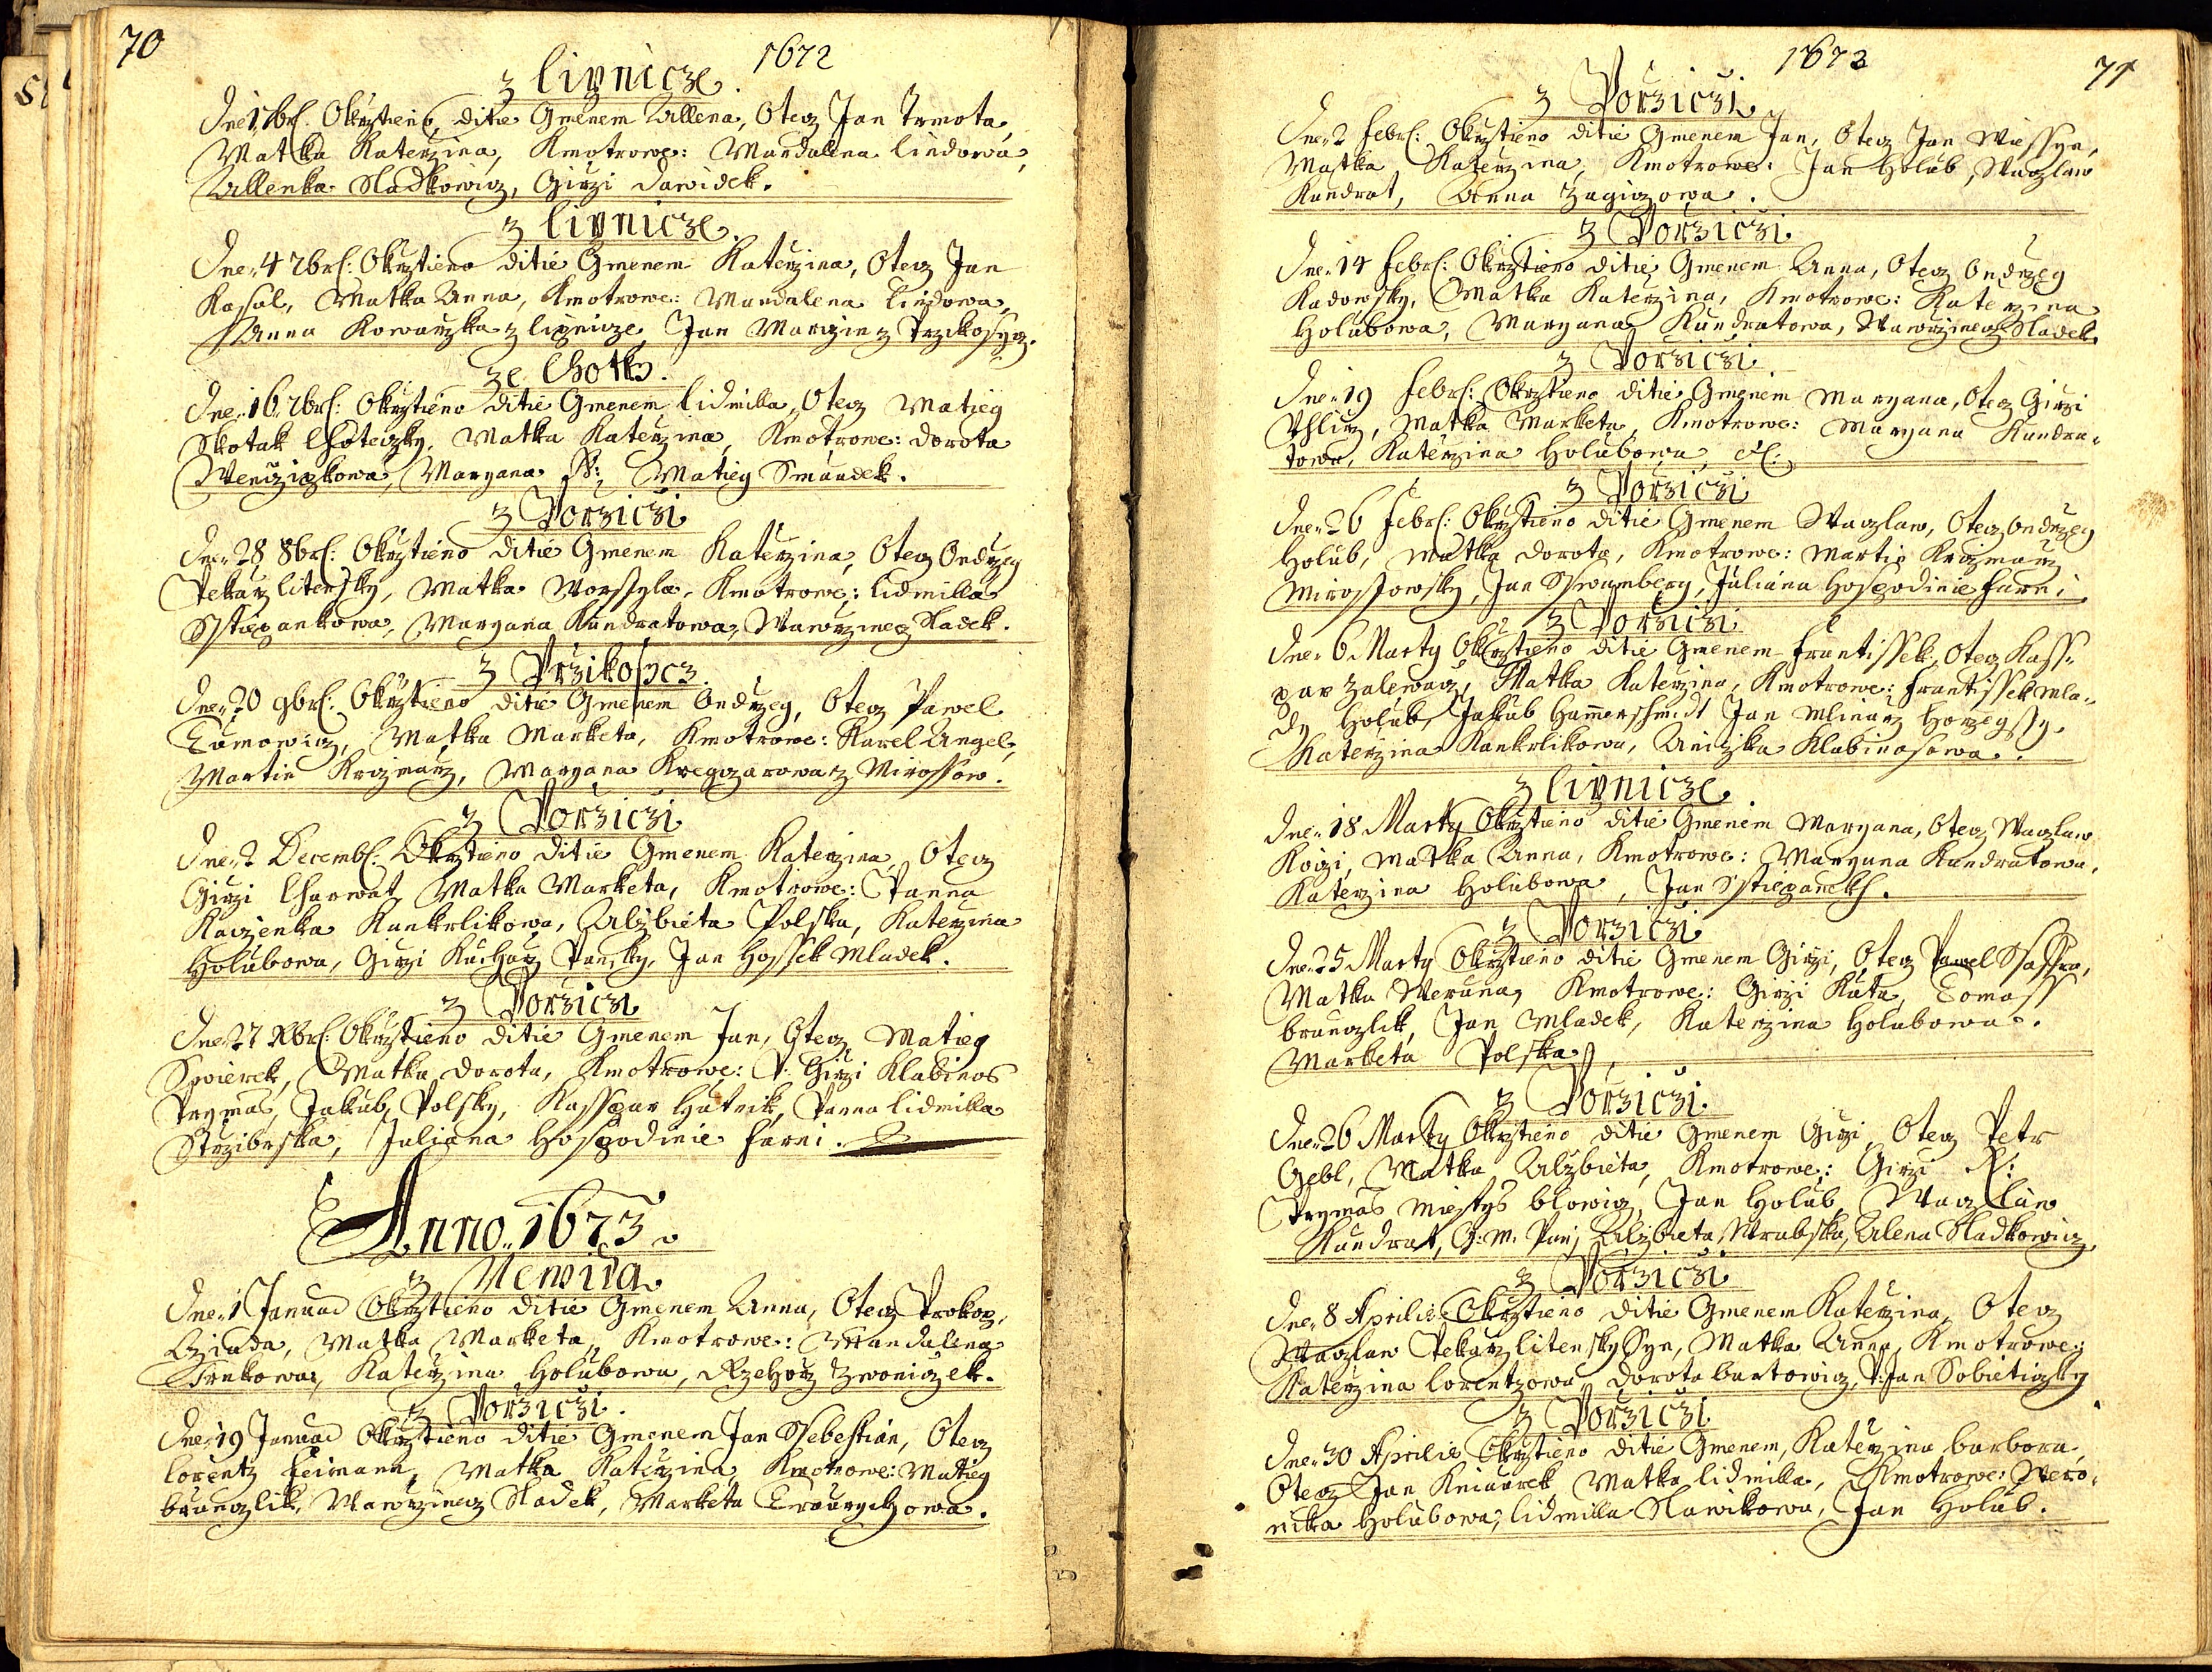 70
1672
z lipnicze.
Dne 1 7brſ. Okrztieno ditie Gmenem Allena, Otecz Jan Trmota,
Matka Katerzina, Kmotrowe: Mandalena lindowa,
Allenka Sladkowicz, Girzi dawidek.
z lipnicze.
Dne 4 7brſ: Okrztieno ditie Gmenem Katerzina, Otecz Jan
Kasal, Matka Anna, Kmotrowe: Mandalena lindowa,
Anna Kowarzka z lipnicze, Jan z Przikosycz.
ze lhotky.
Dne 16 7brſ: Okrztieno ditie Gmenem lidmilla, Otecz Matieg
Skotak lhoteczky, Matka Katerzina, Kmotrowe: dorota
Maryana Matieg Smaudek.
z Porziczi
Dne 28 8brſ: Okrztieno ditie Gmenem Katerzina, Otecz Ondrzeg
Pekarz litensky, Matka Worssyla, Kmotrowe: lidmilla
Sstiepankowa, Maryana Kundratowa, Wawrzinecz Sladek.
z Przikosycz.
Dne 20 9brſ. Okrztieno ditie Gmenem Ondrzeg, Otecz Pawel
Tumowicz, Matka Marketa, Kmotrowe: Karel Angel,
Martin Krczmarz, Maryana z Mirossow.
z Porziczi
Dne 2 Decembſ: Okrztieno ditie Gmenem Katerzina, Otecz
Girzi Charwat, Matka Marketa, Kmotrowe: Panna
Kaczenka Kankrlikowa, Alzbieta Polska, Katerzina
Holubowa, Girzi Kucharz Pansky, Jan Hossek Mladek.
z Porziczi
Dne 27 Xbrſ: Okrztieno ditie Gmenem Jan, Otecz Matieg
Spierek, Matka dorota, Kmotrowe: P. Girzi Klabinos
Prymas, Jakub Polsky, Kasspar Hutnik, Panna lidmilla
Strzibrska, Juliana Hospodinie farni.
Anno 1673.
z Nemira.
Dne 1 Januar Okrztieno ditie Gmenem Anna, Otecz Prokop
Matka Marketa, Kmotrowe: Mandalena
Katerzina Holubowa, Rzehorz Zwoniczek.
z Porziczi.
Dne 19 Januar Okrztieno ditie Gmenem Jan Ssebestian, Otecz
lorentz Heimann, Matka Katerzina, Kmotrowe: Matieg
braunczlik, Wawrzinecz Sladek, Marketa
1673
71
z Porziczi
Dne 2 febrſ: Okrztieno ditie Gmenem Jan, Otecz Jan
Matka Katerzina, Kmotrowe: Jan Holub, Waczlaw
Kundrat, Anna Zagiczowa.
z Porziczi
Dne 14 febrſ: Okrztieno ditie Gmenem Anna, Otecz Ondrzeg
Kadowsky, Matka Katerzina, Kmotrowe: Katerzina
Holubowa, Maryana Kundratowa, Wawrzinecz Sladek.
z Porziczi
Dne 19 febrſ: Okrztieno ditie Gmenem Maryana, Otecz Girzi
Vhlirz, Matka Marketa, Kmotrowe: Maryana Kundra=
towa, Katerzina Holubowa,
z Porziczi
Dne 26 febrſ: Okrztieno ditie Gmenem Waczlaw, Otecz Ondrzeg
Holub, Matka dorota, Kmotrowe: Martin Krczmarz
Mirossowsky, Jan Sswamberg, Juliana Hospodinie farni.
z Porziczi
Dne 6 Marty Okrztieno ditie Gmenem frantissek, Otecz Kass=
par Zalewacz, Matka Katerzina, Kmotrowe: frantissek mla=
dy Holub, Jakub Hammerschmidt, Jan Mlinarz Horzegssy.
Katerzina Kankrlikowa, Aniczka Klabinosowa.
z lipnicze
Dne 18 Marty Okrztieno ditie Gmenem Maryana, Otecz Waczlaw
Koczi, Matka Anna, Kmotrowe: Maryana Kundratowa,
Katerzina Holubowa, Jan Sstiepanek.
z Porziczi
Dne 25 Marty Okrztieno ditie Gmenem Girzi, Otecz Pawel
Matka Weruna, Kmotrowe: Girzi Kuta, Tomass
braunczlik, Jan Mladek, Katerzina Holubowa.
Marketa Polska
z Porziczi
Dne 26 Marty Okrztieno ditie Gmenem Girzi, Otecz Petr
Gebl, Matka Alzbieta, Kmotrowe: Girzi
Prymas Miestys blowicz, Jan Holub, Waczlaw
Kundrat, G: M: Pani Alzbieta Alena Sladkowicz.
z Porziczi
Dne 8 Aprilis Okrztieno ditie Gmenem Katerzina, Otecz
Waczlaw Pekarz litensky Syn, Matka Anna, Kmotrowe:
Katerzina lorentzowa, dorota bartowicz, P: Jan Sobieticzky
z Porziczi
Dne 30 Aprilis Okrztieno ditie Gmenem, Katerzina barbora,
Otecz Jan Matka lidmilla, Kmotrowe: Wero=
nika Holubowa, lidmilla Slawikowa, Jan Holub.